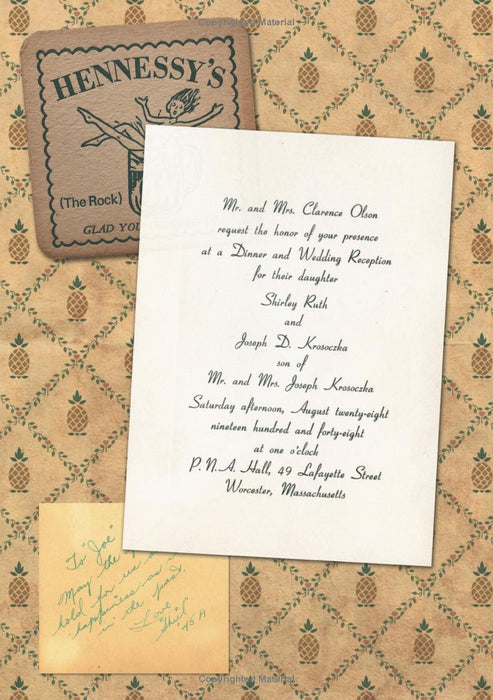 Copyrighted Material
HENNESSY'S
(The Rock)
GLAD YOU
Mr. and Mrs. Clarence Olson
request the honor of your presence
at a Dinner and Wedding Reception
for their daughter
Shirley Ruth
and
Joseph D. Krosoczka
son of
Mr. and Mrs. Joseph Krosoczka
Saturday afternoon, August twenty-eight
nineteen hundred and forty-eight
at one o'clock
P.N.A. Hall, 49 Lafayette Street
Worcester, Massachusetts
To "Joe"
May the
hold for us
happiness as
in the past.
Love
"Shirl"
45 A
Copyrighted Material